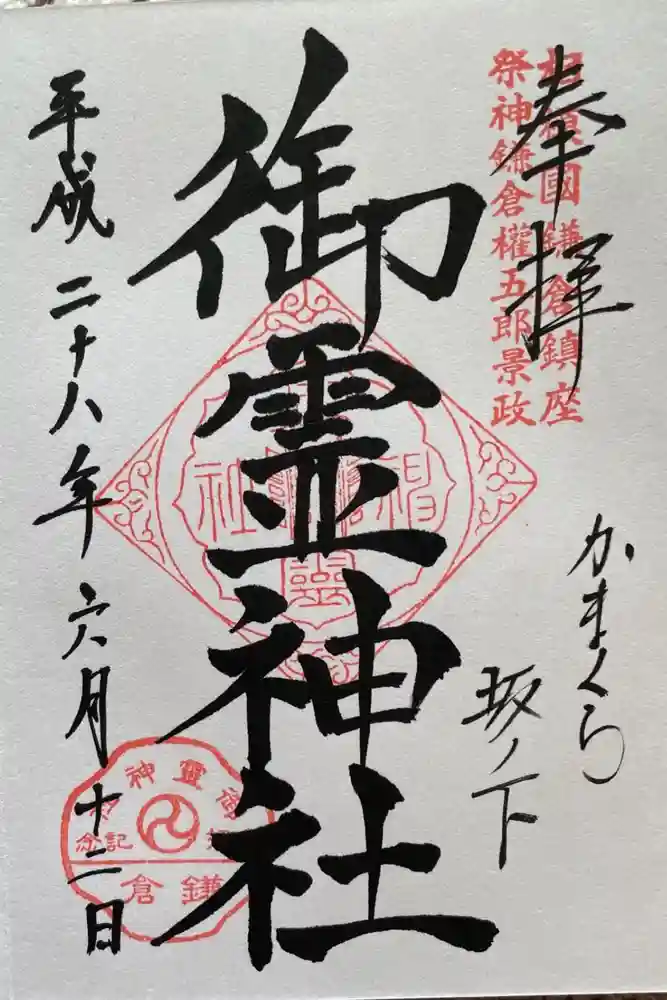 奉拝
相模國鎌倉鎮座
祭神鎌倉權五郎景政
かまくら
坂ノ下
御霊神社
平成二十八年六月十二日
鎌倉